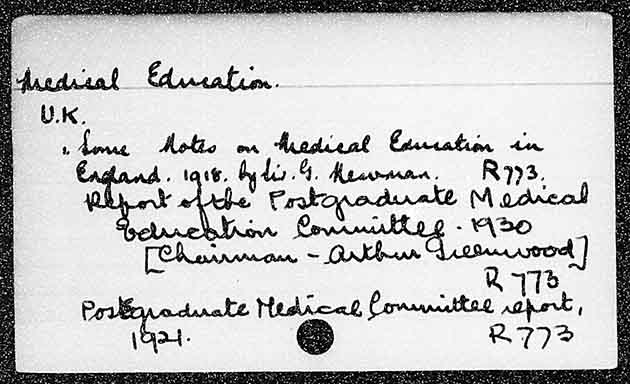 Medical Education.
U.K.
"Some Notes on Medical Education in
England. 1918. by Sir. G. Newman. R773.
Report of the Postgraduate Medical
Education Committee. 1930
[Chairman - Arthur Greenwood]
R 773
Postgraduate Medical Committee report,
1921. R773